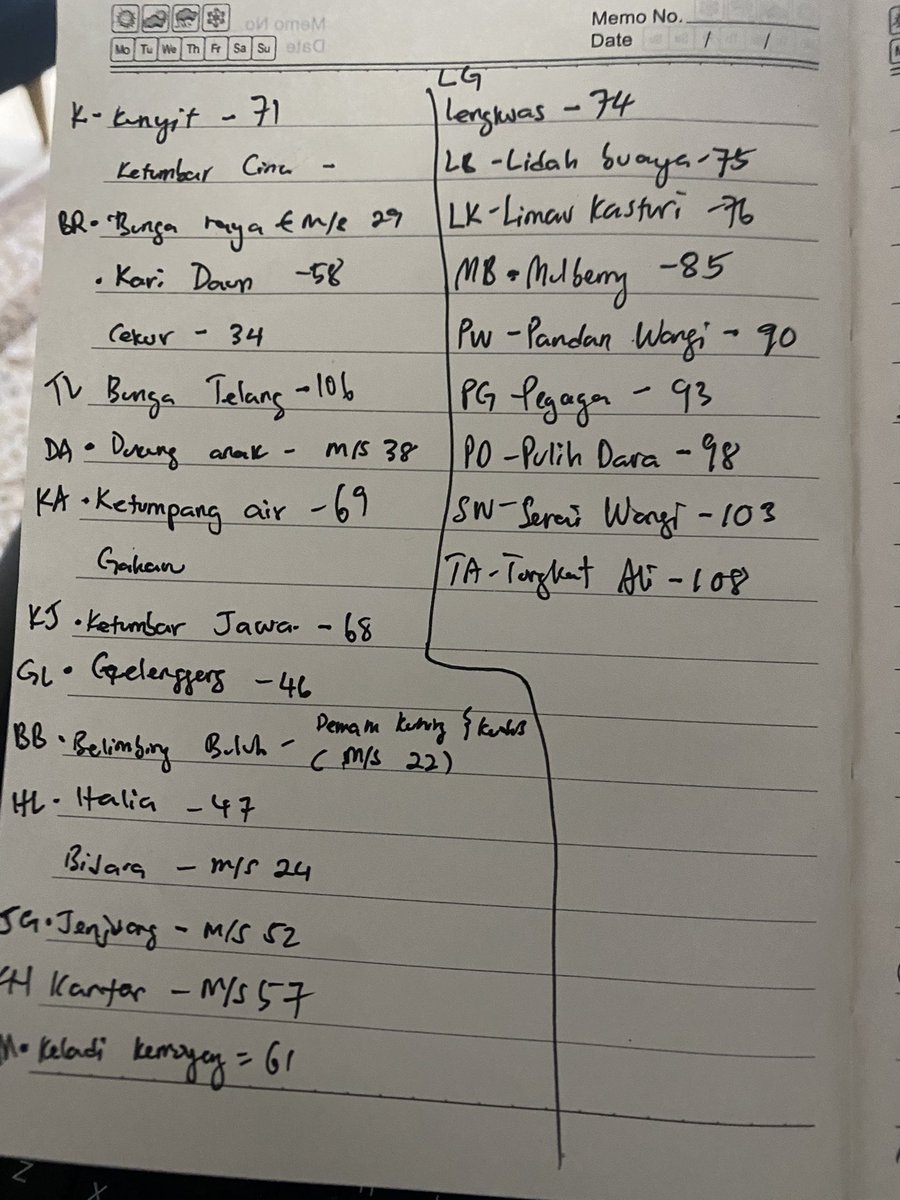 Memo No.
Date / /
Mo Tu We Th Fr Sa Su
K - kunyit - 71
Ketumbar Cina -
BR • Bunga raya € M/S 29
• Kari Daun - 58
Cekur - 34
TL Bunga Telang - 106
DA • Dukung anak - m/s 38
KA • Ketumpang air - 69
Gahan
KJ • Ketumbar Jawa - 68
GL • Gelenggang - 46
BB • Belimbing Buluh - Demam kuning } kudis
(M/S 22)
HL • Halia - 47
Bidara - m/s 24
JG • Jenjuang - M/S 52
Kantan - M/S 57
Keladi kemoyang = 61
LG
lengkuas - 74
LB - Lidah buaya - 75
LK - Limau Kasturi - 76
MB • Mulberry - 85
PW - Pandan Wangi - 90
PG - Pegaga - 93
PD - Pulih Dara - 98
SW - Serai Wangi - 103
TA - Tongkat Ali - 108